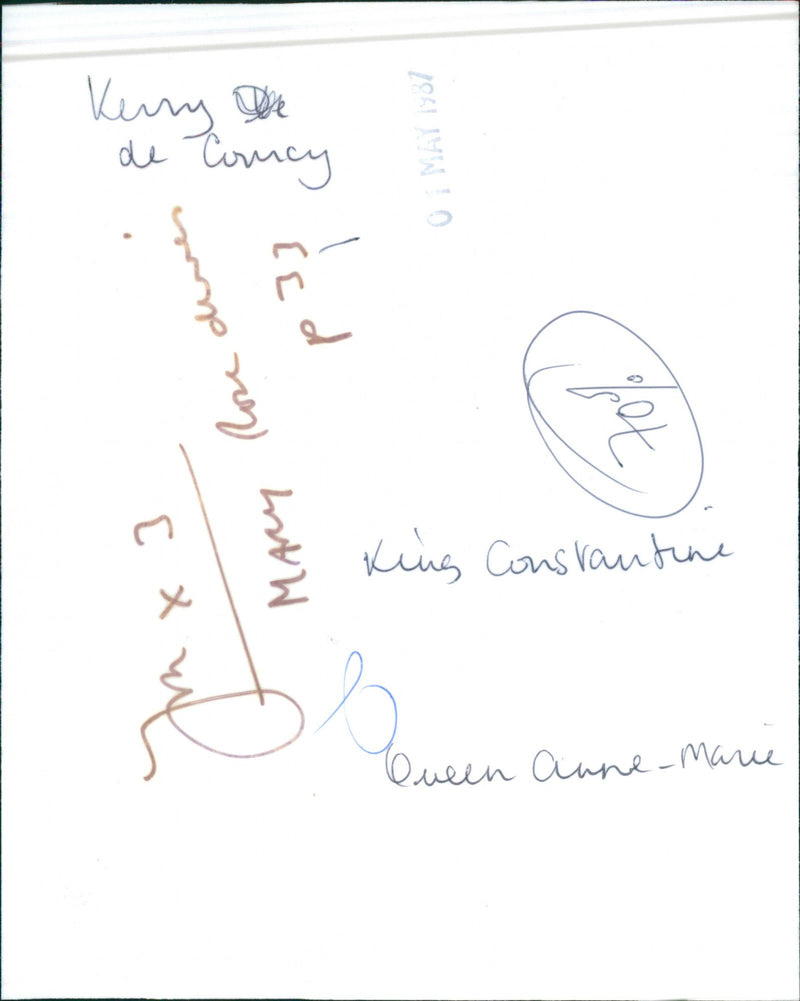 Kerry De
de Courcy
01 MAY 1987
Rose dinner
MARY
P 33
x 3
King Constantine
Queen Anne-Marie